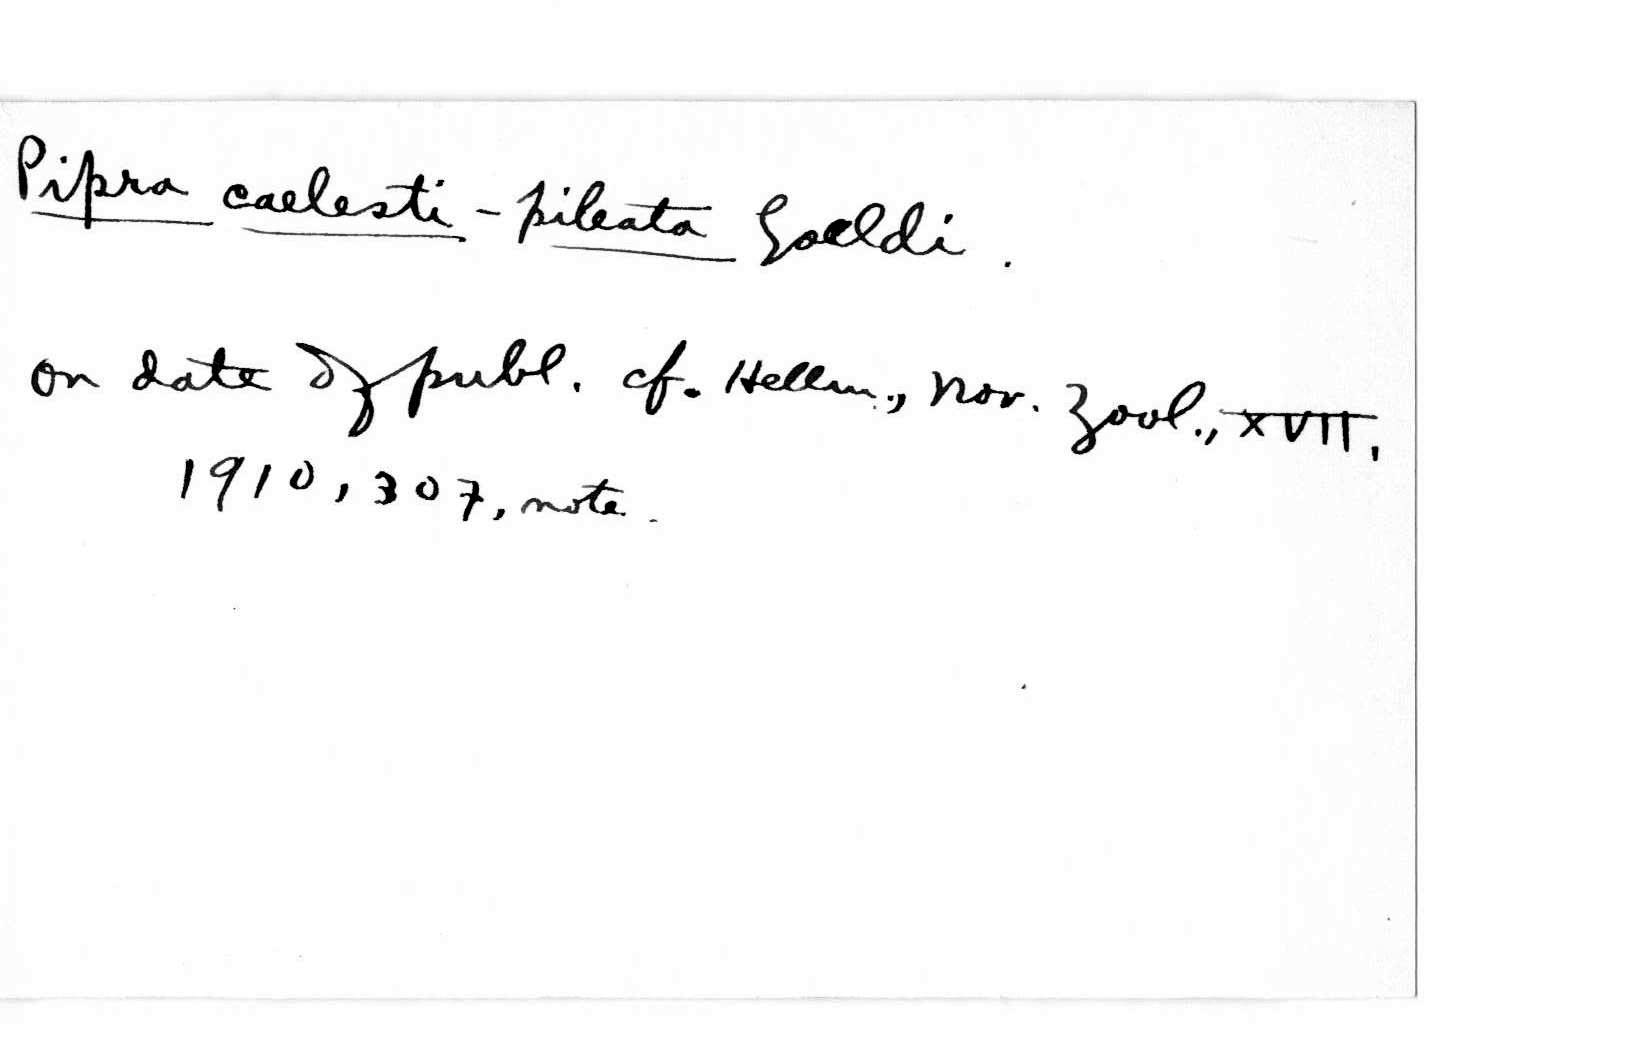 Pipra caelesti-pileata Goeldi.
on date of publ. cf. Hellm., Nov. Zool., XVII,
1910, 307, note.